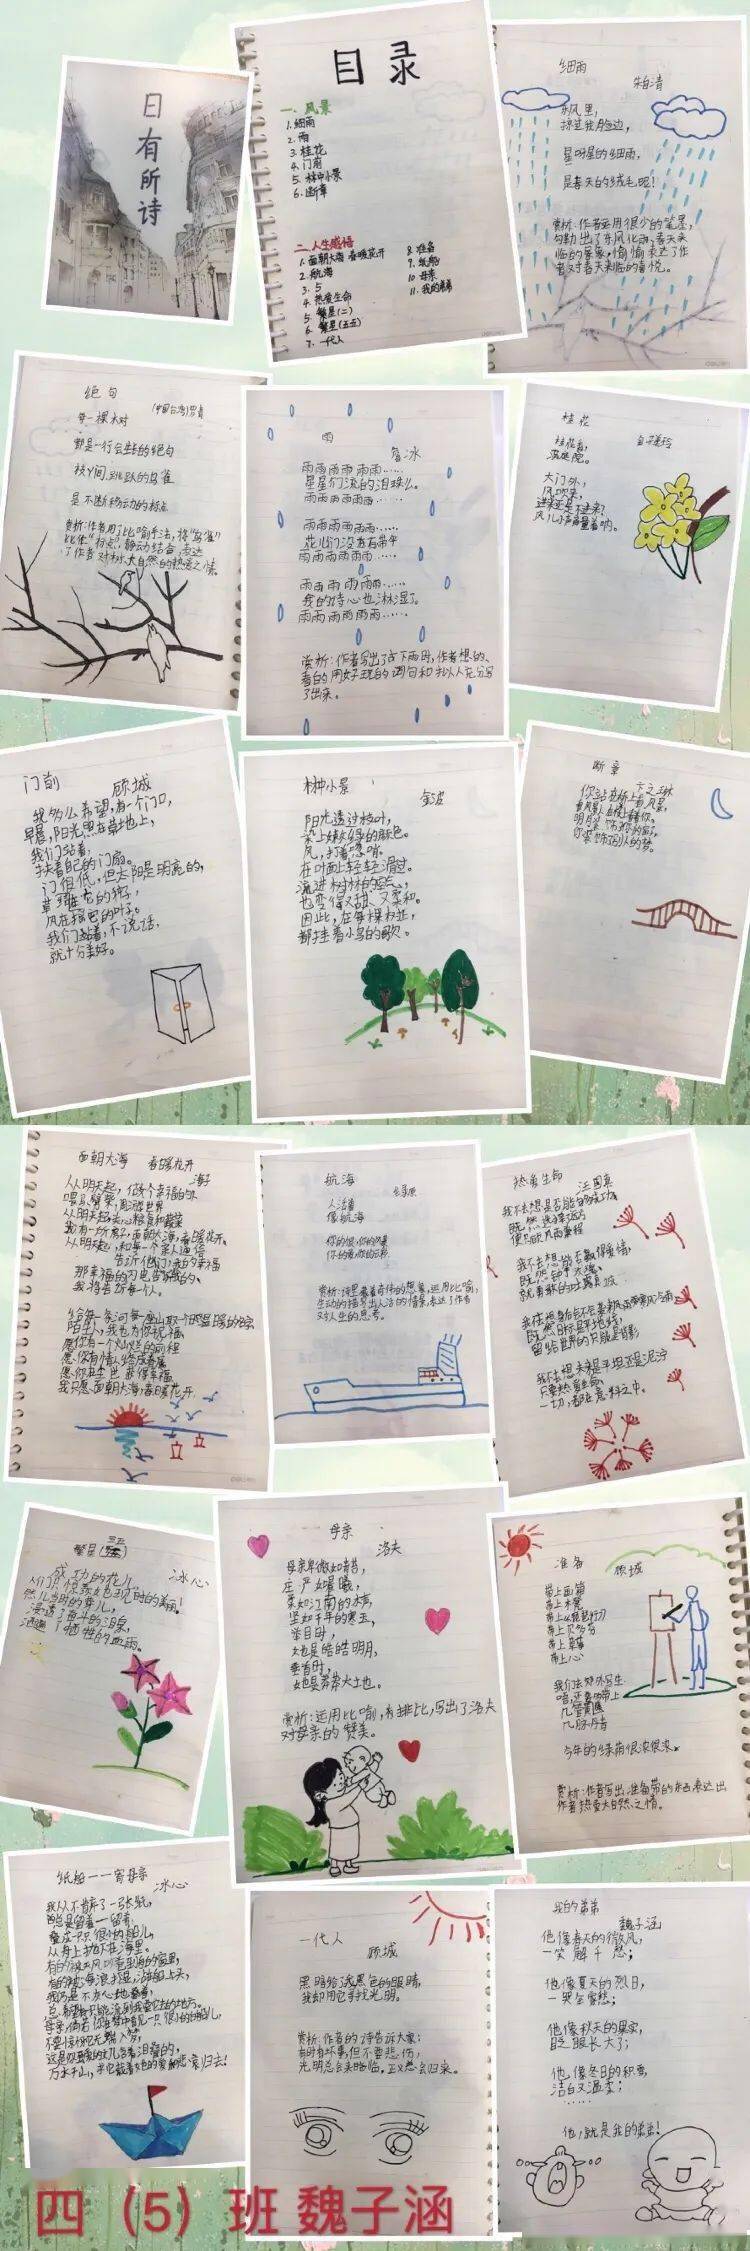 日有所诗
目录
一、风景
1.细雨
2.雨
3.桂花
4.门前
5.林中小景
6.断章
二.人生感悟
1.面朝大海 春暖花开
2.航海
3.5
4.热爱生命
5.繁星(二)
6.繁星(五五)
7.一代人
8.准备
9.纸船
10.母亲
11.我的弟弟
细雨
朱自清
东风里,
掠过我脸边,
星呀星的细雨,
是春天的绒毛呢!
赏析:作者运用很少的笔墨,
勾勒出了东风化雨,春天来
临的景象,愉愉表达了作
者对春天来临的喜悦。
绝句
(中国台湾)罗青
每一棵木对
都是一行会生长的绝句
枝丫间,跳跃的鸟雀
是不断移动的标点
赏析:作者用了比喻手法,将“鸟雀”
比作“标点”,静动结合,表达
了作者对树、大自然的热爱之情。
雨
雨雨雨雨雨雨……
星星们流的泪珠么。
雨雨雨雨雨雨……
雨雨雨雨雨雨……
花儿们没有有带伞
雨雨雨雨雨雨……
雨雨雨雨雨……
我的诗心也淋湿了。
雨雨雨雨雨雨……
赏析:作者写出了在下雨时,作者想的、
看的用好玩的词句和拟人充分写
了出来。
桂花
桂花香,
满庭院。
大门外,
风吹来,
进来还是不进来?
门前
顾城
我多么希望,有一个门口,
早晨,阳光照在草地上,
我们站着,
扶着自己的门扇。
门很低,但太阳是明亮的,
草在结它的种子,
风在摇它的叶子。
我们站着,不说话,
就十分美好。
林中小景
金波
阳光透过枝叶,
染上嫩绿的颜色。
风,打着唿哨。
在叶面上轻轻滑过。
流进树林的空气,
也变得又甜、又柔和。
因此,在每棵树上,
都挂着小鸟的歌。
断章
卞之琳
你站在桥上看风景,
看风景人在楼上看你。
明月装饰了你的窗子,
你装饰了别人的梦。
面朝大海 春暖花开
海子
从明天起,做个幸福的人
喂马劈柴,周游世界
从明天起,关心粮食和蔬菜
我有一所房子,面朝大海,春暖花开。
从明天起,和每一个亲人通信
告诉他们,我的幸福
那幸福的闪电告诉我的。
我将告诉每个人。
给每一条河每一座山取个温暖的名字
陌生人,我也为你祝福
愿你有一个灿烂的前程
愿你有情人终成眷属
愿你在尘世获得幸福
我只愿面朝大海,春暖花开。
航海
人活着
像航海
你的恨,你的风暴
你的爱,你的云彩
热爱生命
汪国真
我不去想是否能够成功
既然选择远方
便只顾风雨兼程
我不去想能否赢得爱情,
就勇敢的吐露真诚
既然目标是地平线,
留给世界的只能是背影
我不去想未来是平坦还是泥泞
只要热爱生命
一切,都在意料之中。
繁星
冰心
成功的花儿
人们只惊羡她现时的美丽!
然儿当时的芽儿,
浸透了奋斗的泪泉,
洒遍了牺牲的血雨。
母亲
洛夫
母亲卑微如青苔,
庄严如晨曦,
柔如江南的水声,
坚如千年的寒玉,
举目时,
她也是皓皓明月,
垂首时,
她也是莽莽大土也。
赏析:运用比喻,有排比,写出了洛夫
对母亲的赞美。
准备
顾城
带上画箱
带上木凳
带上贝多芬
带上草莓
带上心
我们去郊外写生
今年的绿荫很浓很浓。
赏析:作者写出,准备带的东西,表达出
作者热爱大自然之情。
纸船——寄母亲
冰心
我从不肯弃了一张纸,
总是留着—留着,
叠成一只只很小的船儿,
从舟上抛下在海里。
有的被天风吹卷到舟的窗里,
有的被海浪打湿,沾在船头上,
我仍是不灰心地叠着,
总希望有一只能流到我要它到的地方。
母亲,倘若你在梦中看见一只很小的白船儿,
不要惊讶它无端入梦,
这是你至爱的女儿含着泪叠的,
万水千山,求它载着她的爱和悲哀归去!
一代人
顾城
黑暗给了我黑色的眼睛,
我却用它寻找光明。
赏析:作者的诗告诉大家:
有时有坏事,但不要悲伤,
光明总会来临。正义总会归来。
我的弟弟
魏子涵
他像春天的微风,
一笑解千愁;
他像夏天的烈日,
一哭全震怒;
他像秋天的果实,
眨眼长大了;
他像冬日的积雪,
洁白又温柔;
……
他,就是我的弟弟!
四（5）班 魏子涵